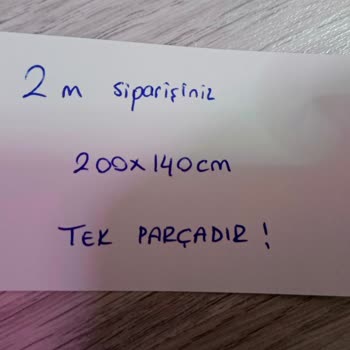 2 m siparişiniz
200x140cm
TEK PARÇADIR !